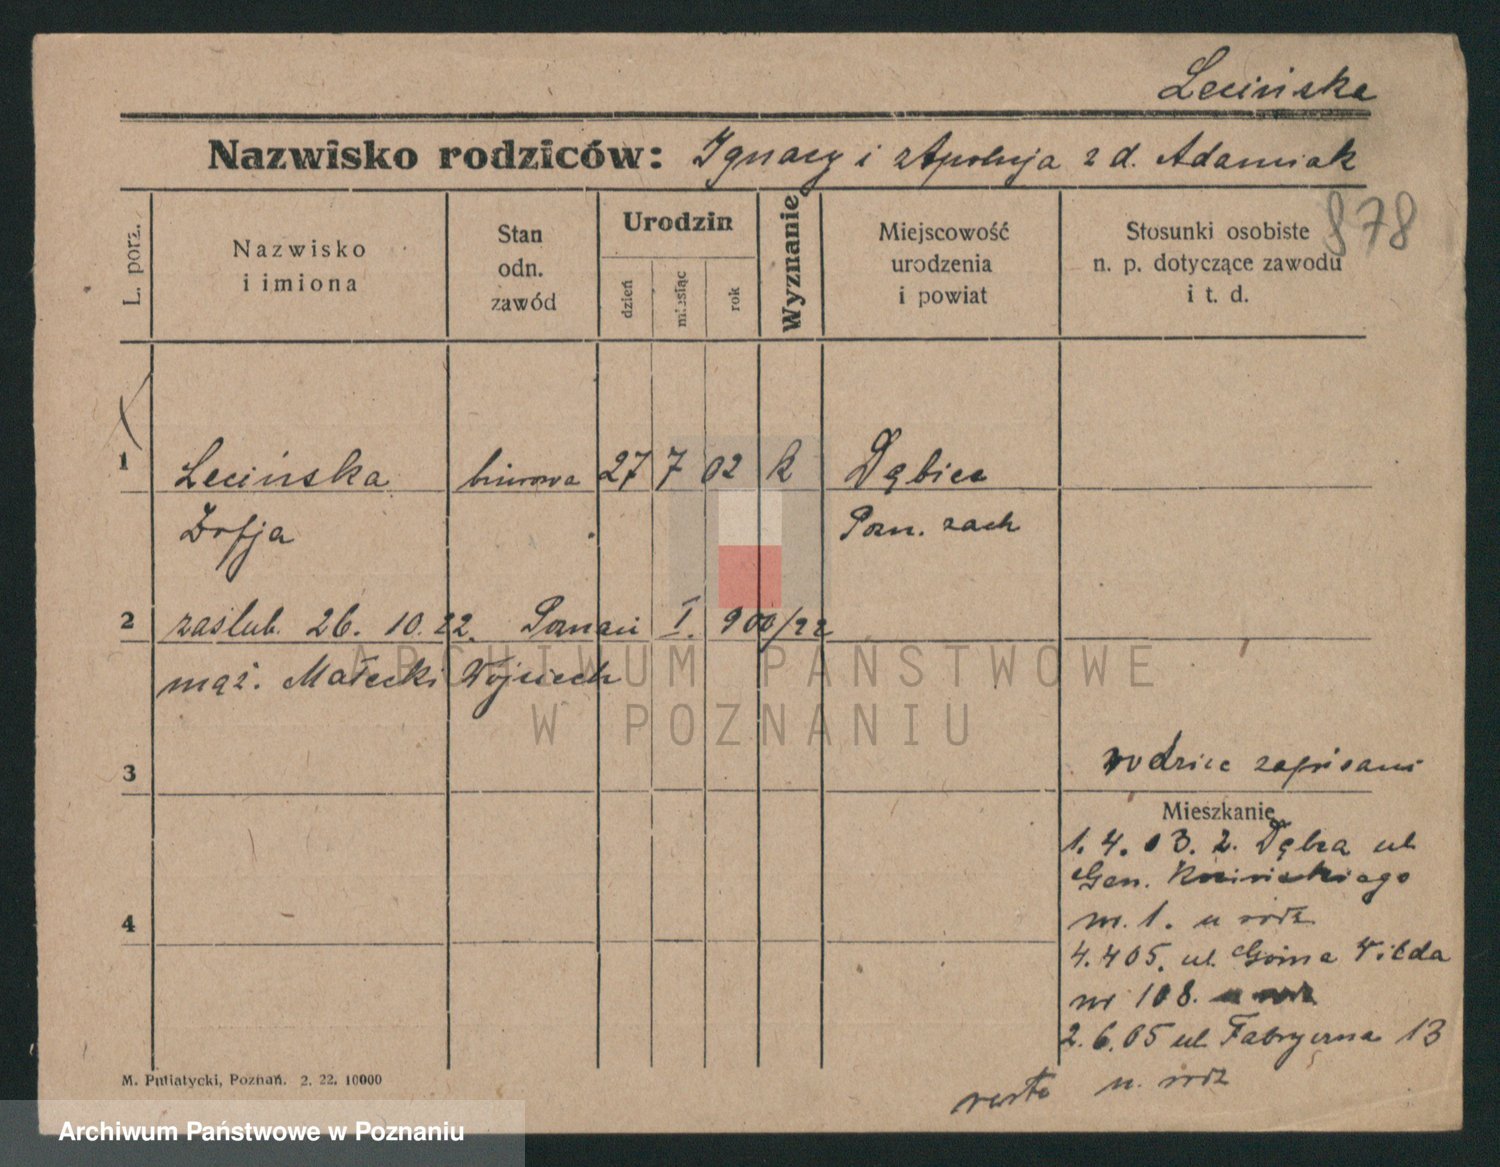 Lecińska
Nazwisko rodziców: Ignacy i Apolonja z d. Adamiak
878
L. porz.
Nazwisko
i imiona
Stan
odn.
zawód
Urodzin
dzień
miesiąc
rok
Wyznanie
Miejscowość
urodzenia
i powiat
Stosunki osobiste
n. p. dotyczące zawodu
i t. d.
1 Lecińska biurowa 27 7 02 k Dębiec
Zofja Pozn. zach
2 zaślub. 26. 10. 22. Poznań I. 900/22
mąż. Małecki Wojciech
3 rodzice zapisani
Mieszkanie
1. 4. 03. z Dębca ul
Gen.
m. 1. u rodz
4
4. 4 05. ul. Górna Wilda
nr 108. u rodz
2. 6. 05 ul Fabryczna 13
u. rodz
verte
M. Putiatycki, Poznań. 2. 22. 10000
ARCHIWUM PAŃSTWOWE
W POZNANIU
Archiwum Państwowe w Poznaniu